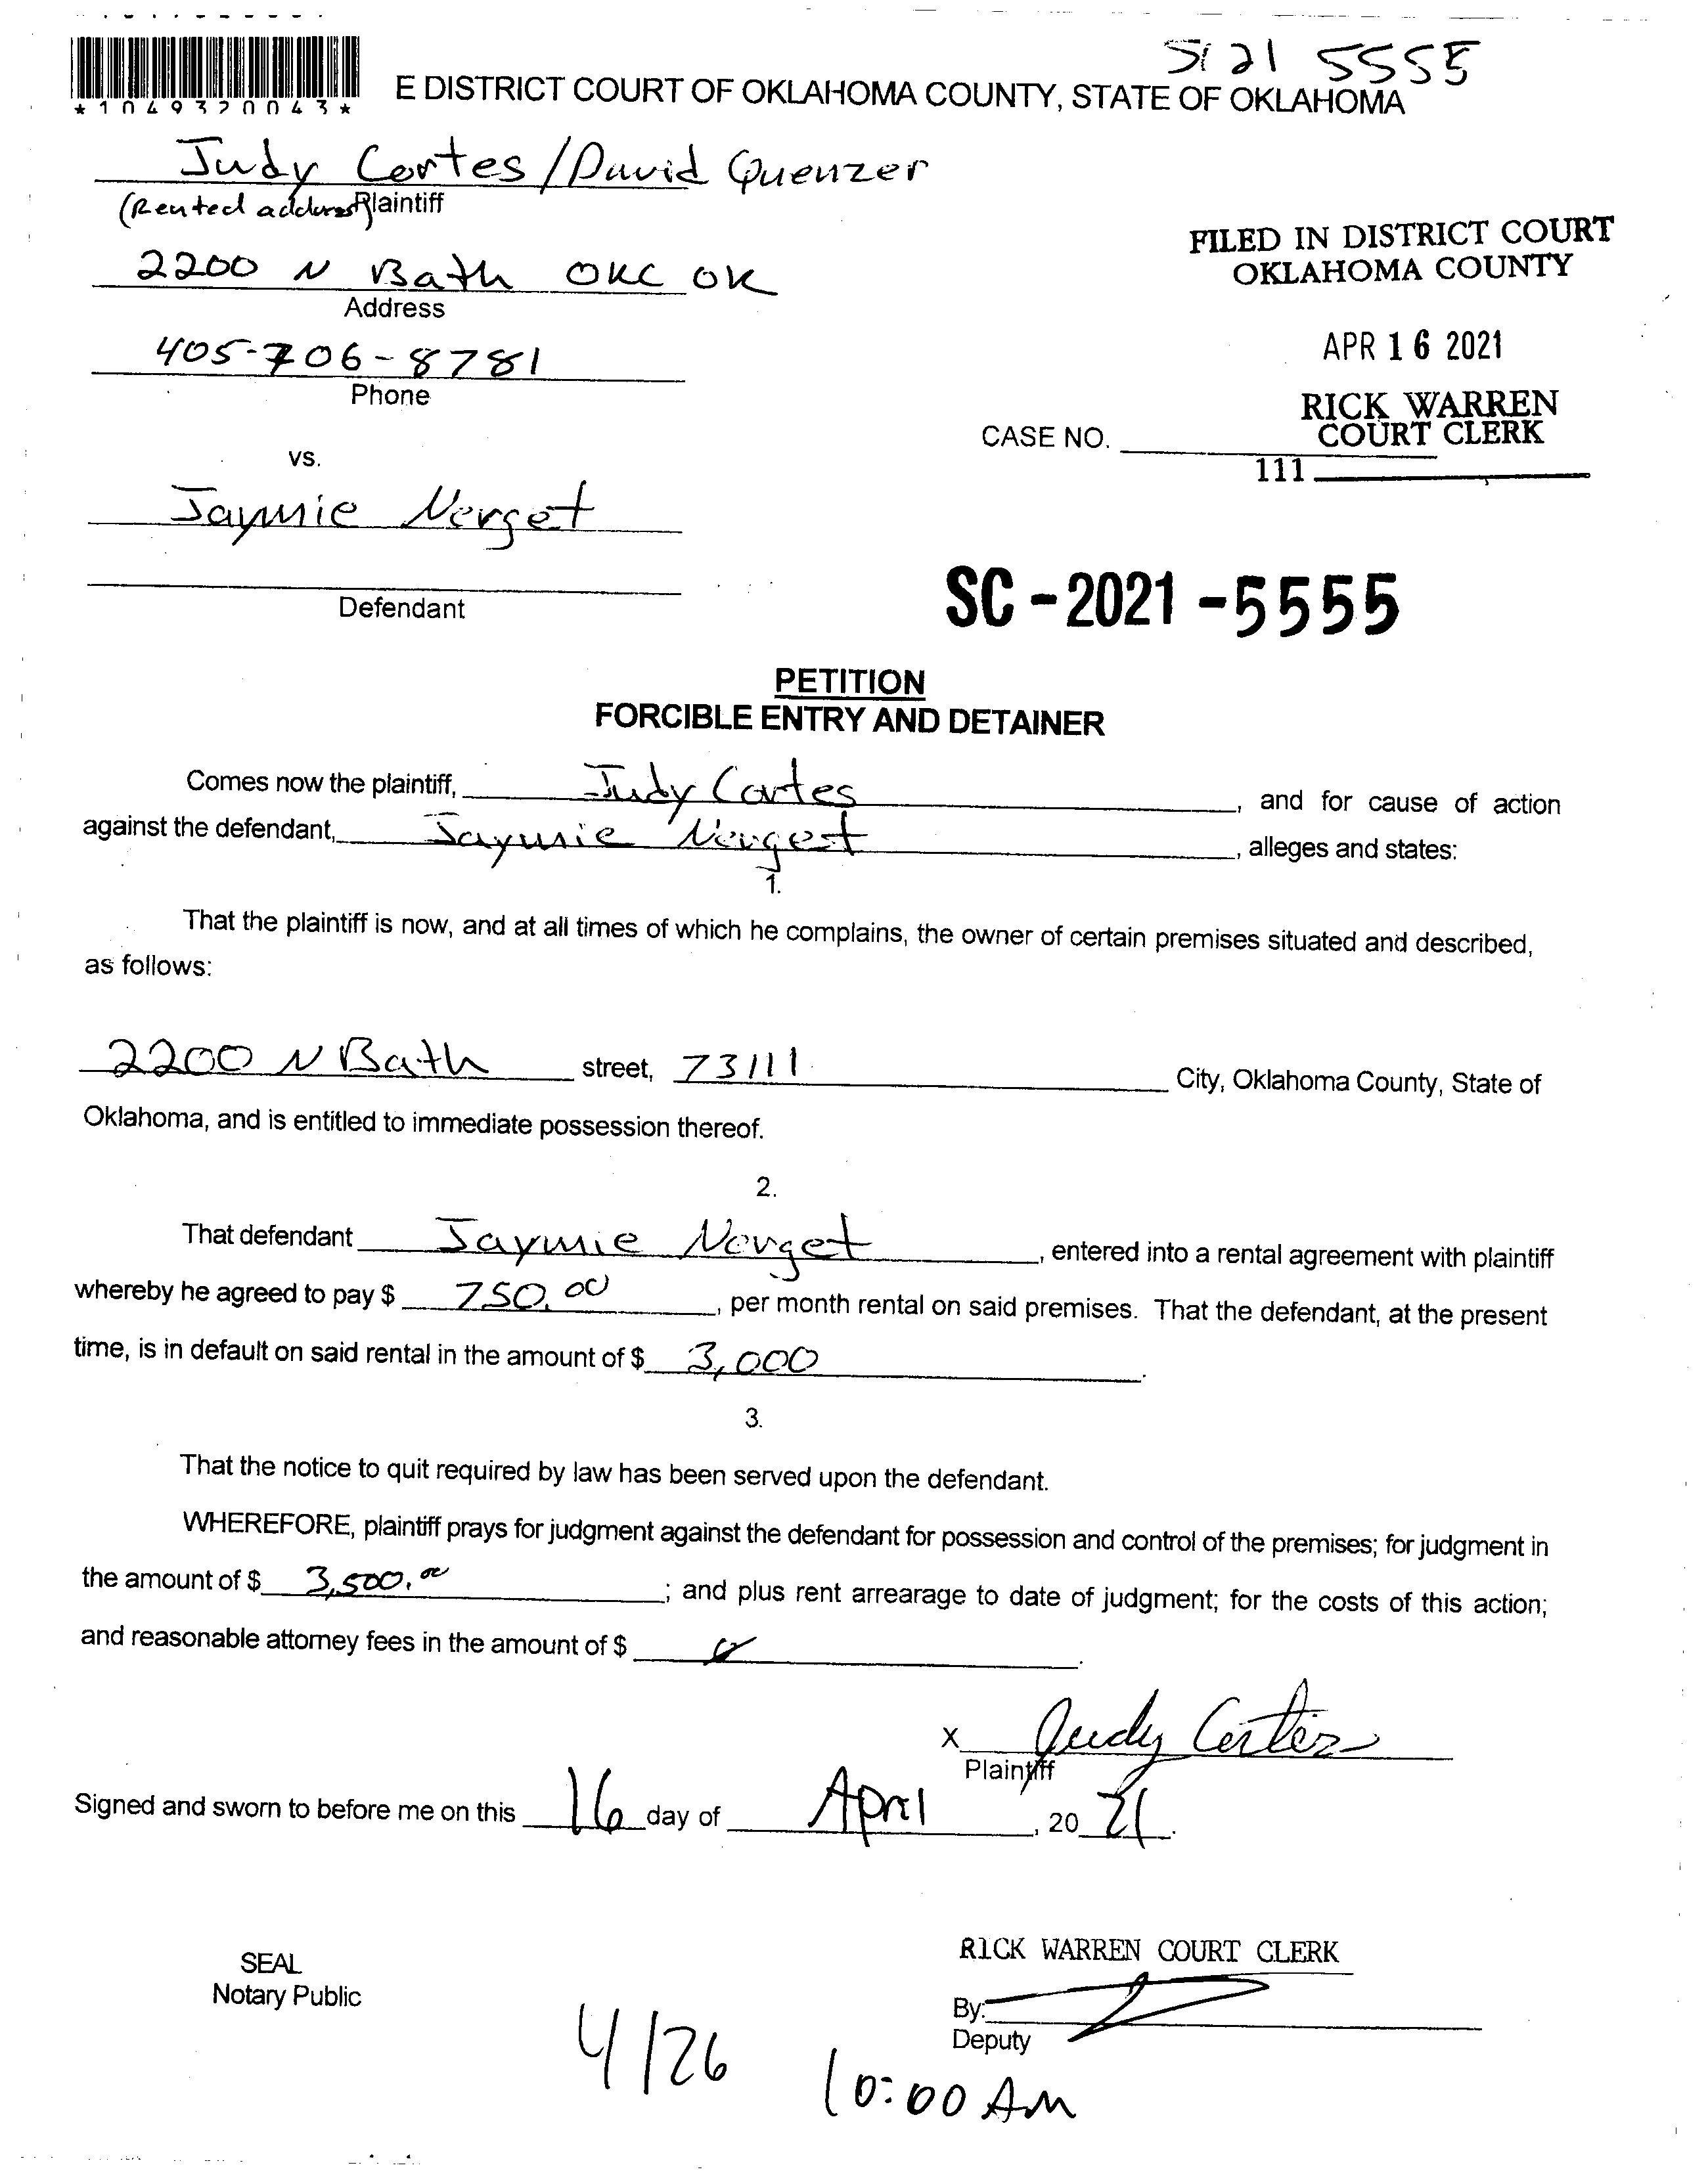 5121 5555
*1049320043*
E DISTRICT COURT OF OKLAHOMA COUNTY, STATE OF OKLAHOMA
Judy Cortes/David Quenzer
(Rented address) Plaintiff
2200 N Bath OKC OK
Address
405-706-8781
Phone
FILED IN DISTRICT COURT
OKLAHOMA COUNTY
APR 16 2021
RICK WARREN
COURT CLERK
CASE NO.
111
vs.
Jaymie Norget
Defendant
SC-2021-5555
PETITION
FORCIBLE ENTRY AND DETAINER
Comes now the plaintiff, Judy Cortes, and for cause of action
against the defendant, Jaymie Norget, alleges and states:
1.
That the plaintiff is now, and at all times of which he complains, the owner of certain premises situated and described,
as follows:
2200 N Bath street, 73111 City, Oklahoma County, State of
Oklahoma, and is entitled to immediate possession thereof.
2.
That defendant Jaymie Norget, entered into a rental agreement with plaintiff
whereby he agreed to pay $ 750.00, per month rental on said premises. That the defendant, at the present
time, is in default on said rental in the amount of $ 3,000.
3.
That the notice to quit required by law has been served upon the defendant.
WHEREFORE, plaintiff prays for judgment against the defendant for possession and control of the premises; for judgment in
the amount of $ 3,500.00; and plus rent arrearage to date of judgment; for the costs of this action;
and reasonable attorney fees in the amount of $
X Judy Cortes
Plaintiff
Signed and sworn to before me on this 16 day of April, 20 21.
SEAL
Notary Public
RICK WARREN COURT CLERK
By:
Deputy
4/26
10:00 AM